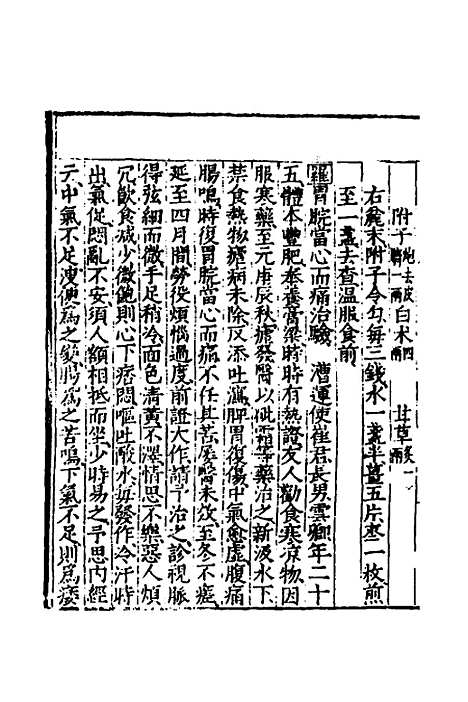 附子炮去皮臍一兩 白术四兩 甘草炙一兩
右麄末附子令勻每三錢水一盞半薑五片棗一枚煎
至一盞去查温服食前
羅胃脘當心而痛治驗 漕運使崔君長男雲卿年二十
五體本豐肥奉養膏粱時時有熱證友人勸食寒凉物因
服寒藥至元庚辰秋瘧發醫以砒霜等藥治之新汲水下
禁食熱物瘧病未除反添吐瀉脾胃復傷中氣愈虛腹痛
腸鳴時復胃脘當心而痛不任其苦屢醫未效至冬不瘥
延至四月間勞役煩惱過度前證大作請予治之診視脈
得弦細而微手足稍冷面色青黄不澤情思不樂惡人煩
冗飲食减少微飽則心下痞悶嘔吐酸水每發作冷汗時
出氣促悶亂不安須人額相抵而坐少時易之予思内經
云中氣不足溲便爲之變腸爲之苦鳴下氣不足則爲痿